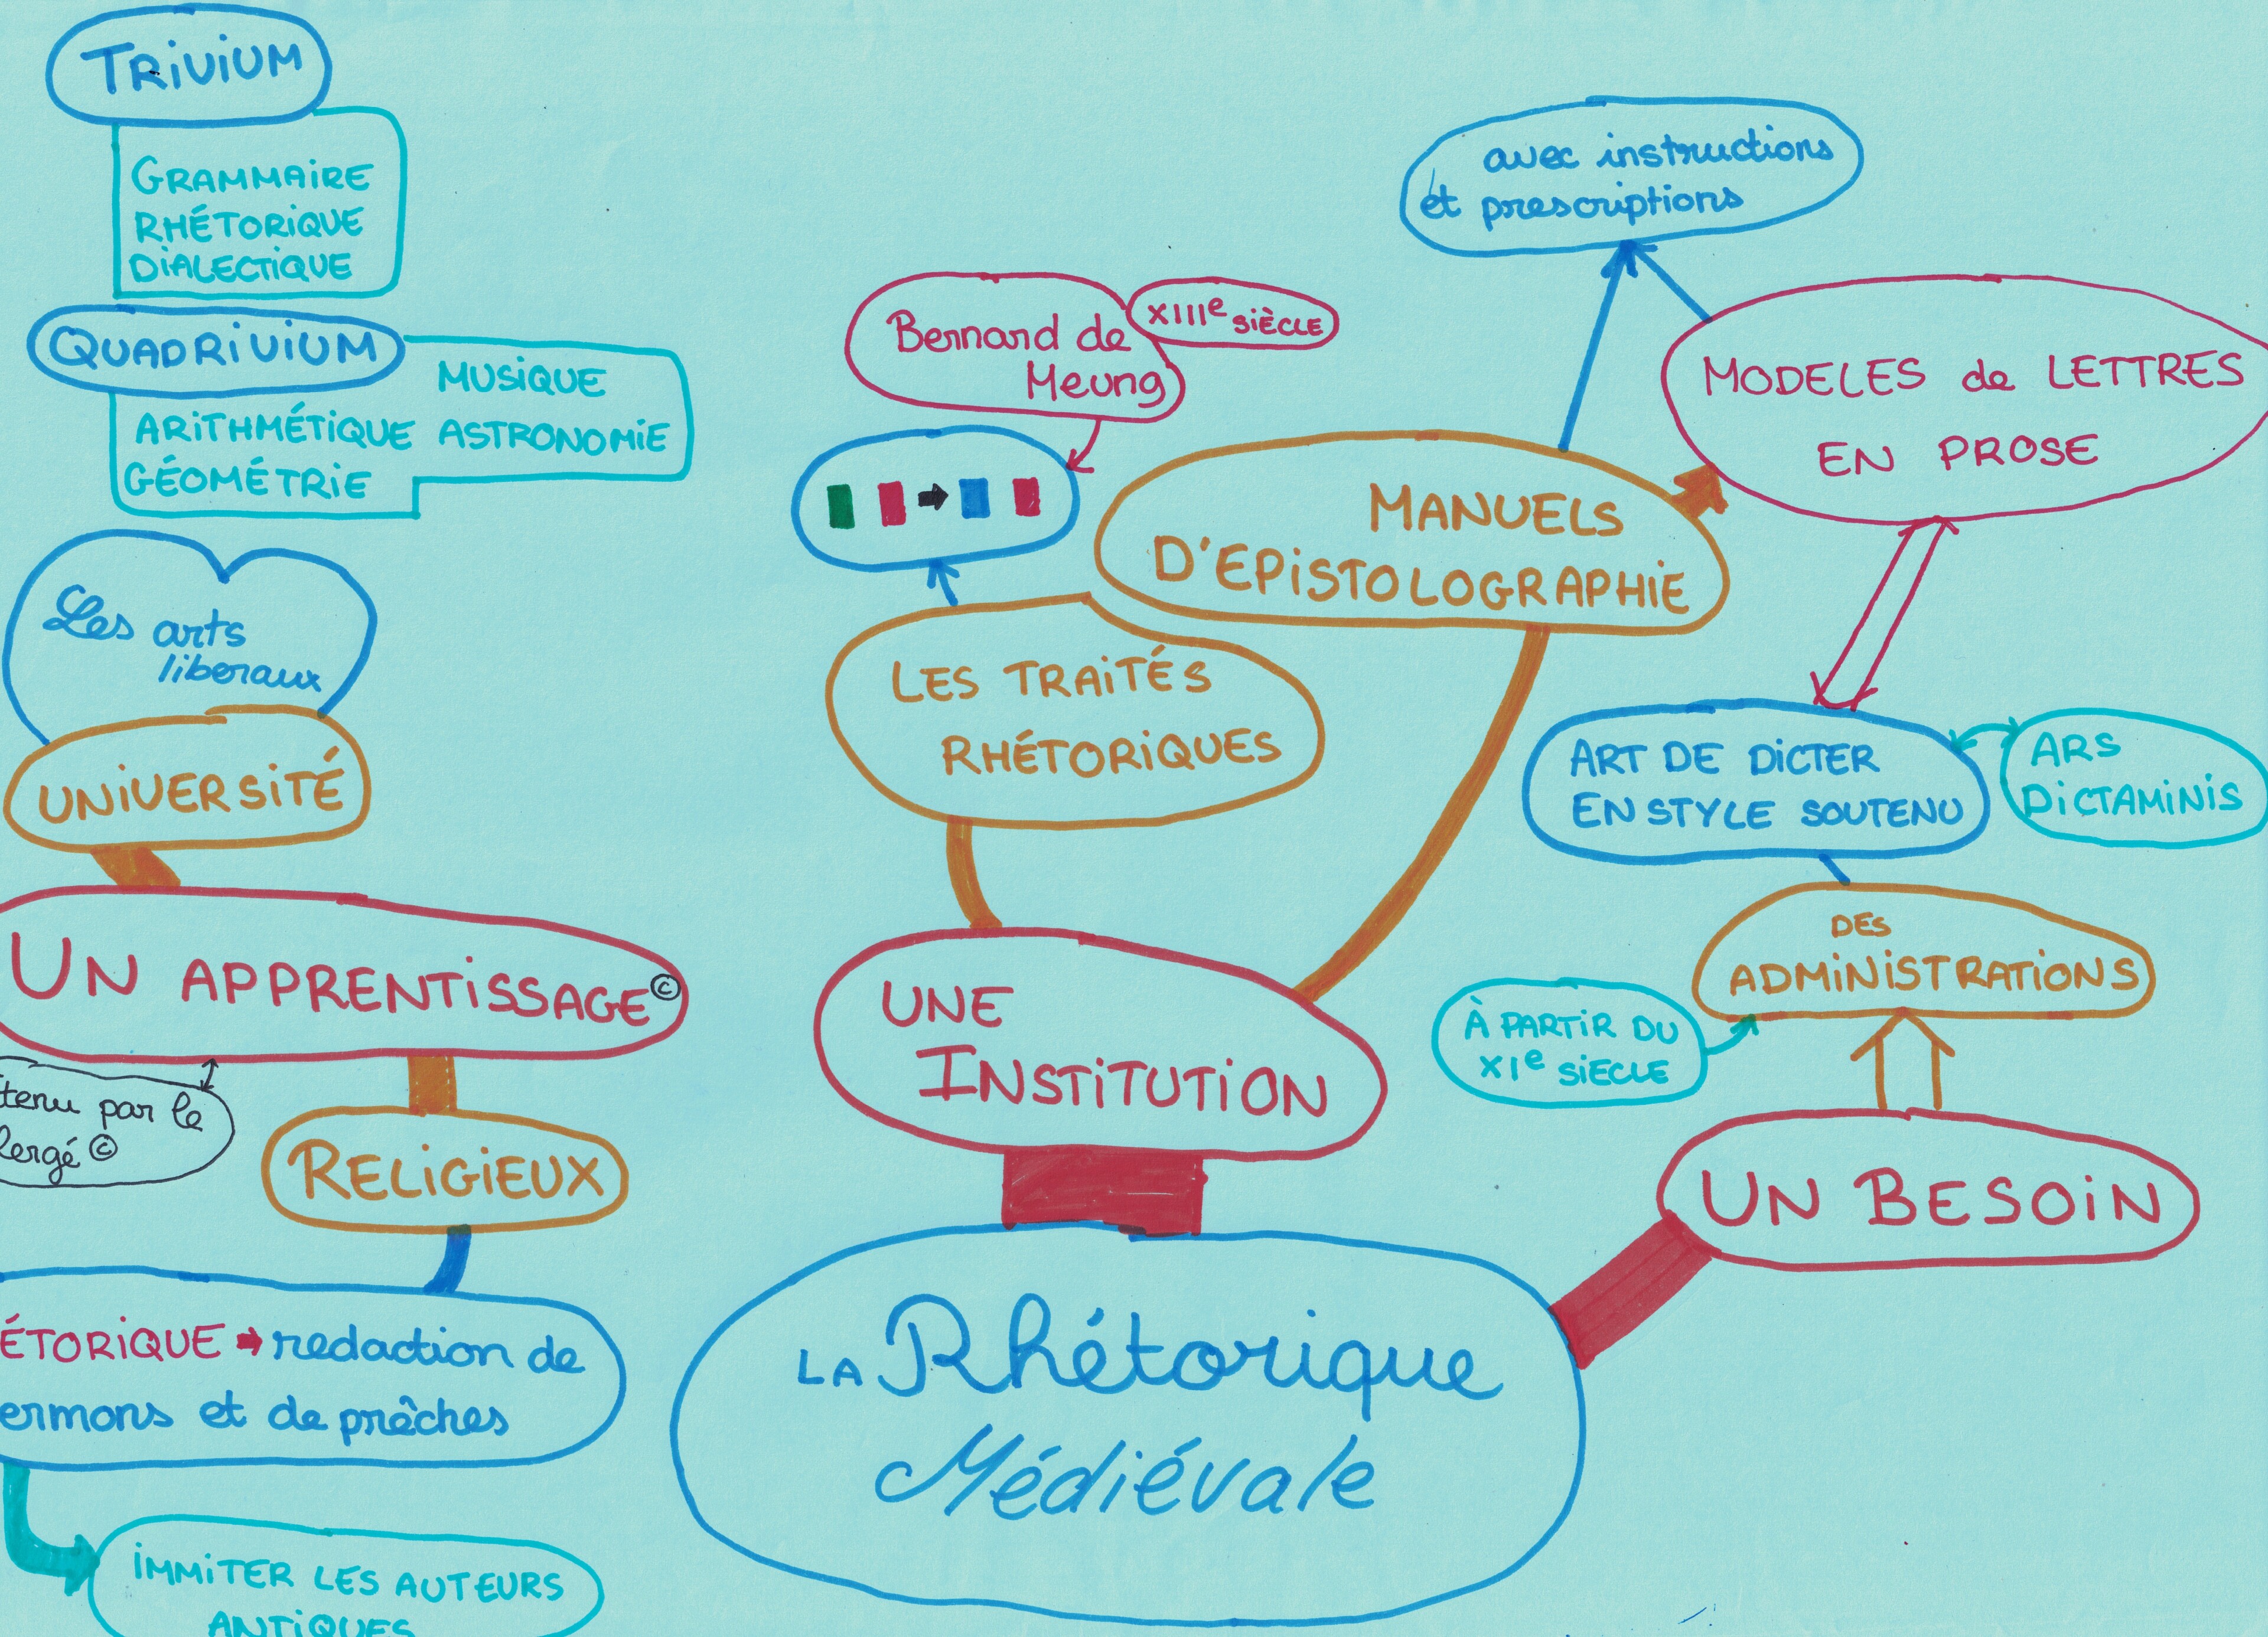 TRIVIUM
GRAMMAIRE
RHÉTORIQUE
DIALECTIQUE
QUADRIVIUM
MUSIQUE
ARITHMÉTIQUE ASTRONOMIE
GÉOMÉTRIE
Les arts
liberaux
UNIVERSITÉ
UN APPRENTISSAGE ©
tenu par le
lergé ©
RELIGIEUX
ÉTORIQUE → redaction de
ermons et de prêches
IMMITER LES AUTEURS
ANTIQUES
Bernard de
Meung
XIIIe SIÈCLE
LES TRAITÉS
RHÉTORIQUES
MANUELS
D'EPISTOLOGRAPHIE
avec instructions
et prescriptions
MODELES de LETTRES
EN PROSE
ART DE DICTER
EN STYLE SOUTENU
ARS
DICTAMINIS
DES
ADMINISTRATIONS
À PARTIR DU
XIe SIECLE
UN BESOIN
UNE
INSTITUTION
LA Rhétorique
Médiévale